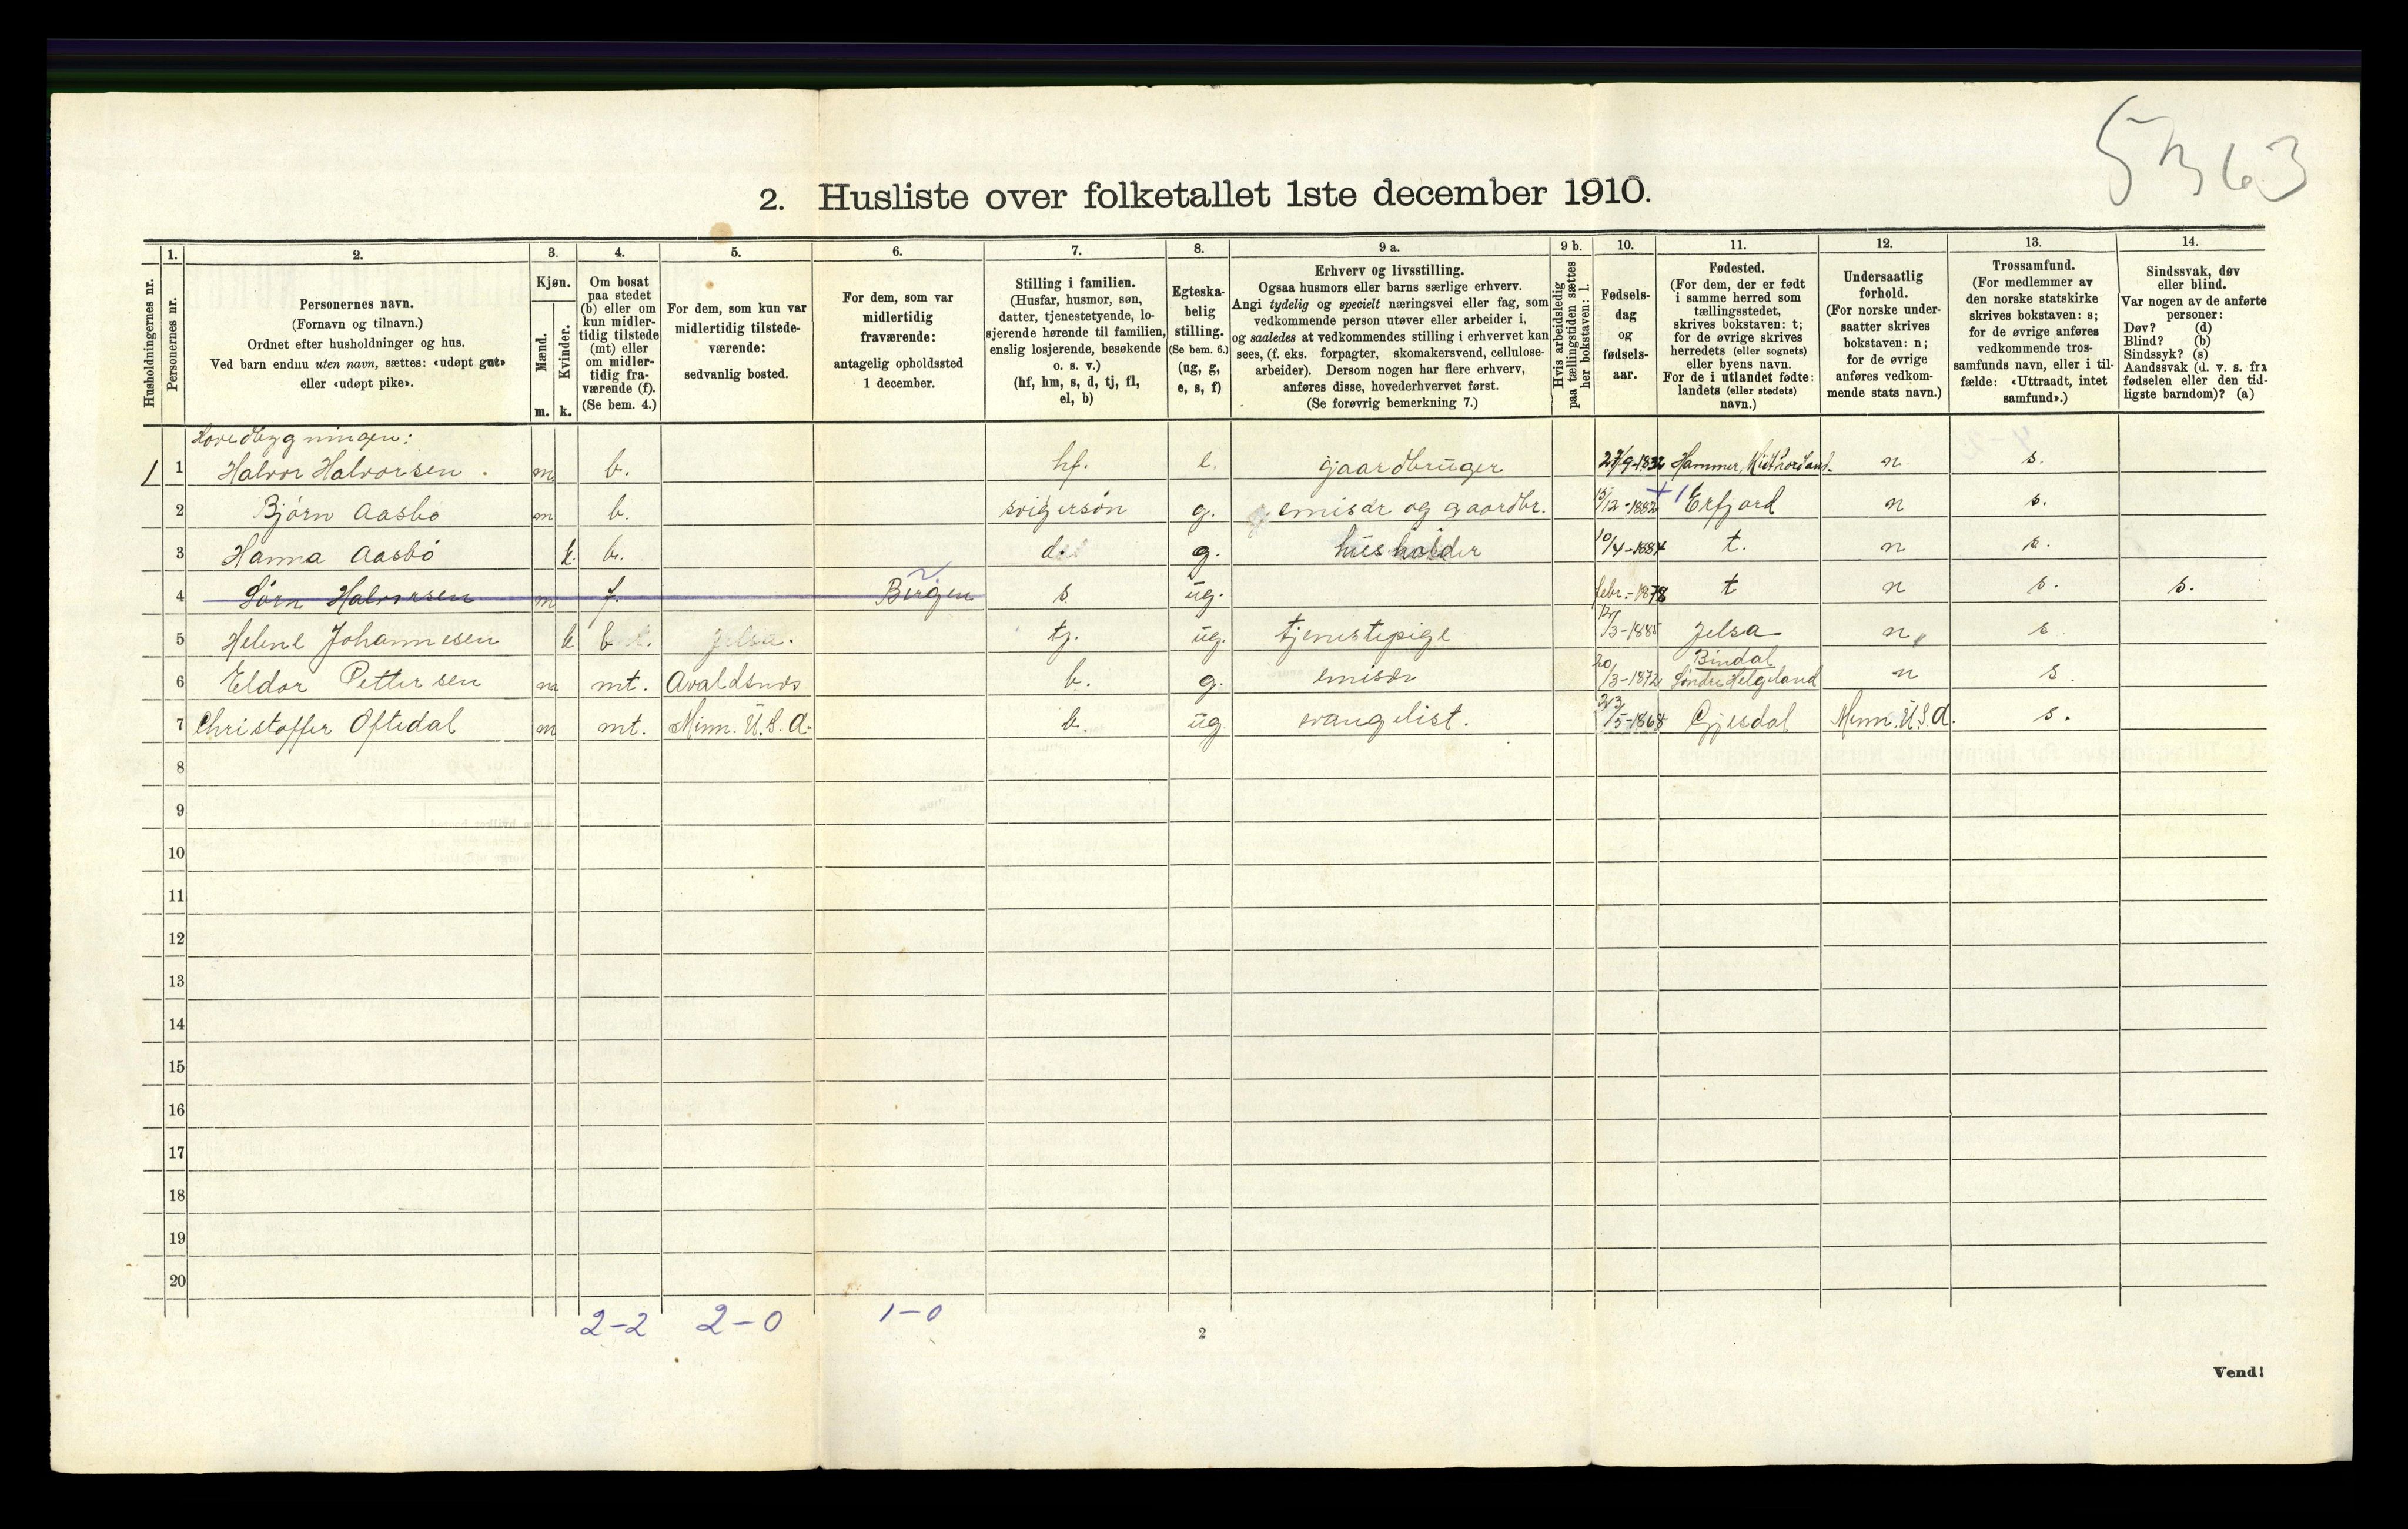 5363
2. Husliste over folketallet 1ste december 1910.
1. 2. 3. 4. 5. 6. 7. 8. 9 a. 9 b. 10. 11. 12. 13. 14.
Husholdningernes nr.
Personernes nr.
Personernes navn.
(Fornavn og tilnavn.)
Ordnet efter husholdninger og hus.
Ved barn endnu uten navn, sættes: «udøpt gut»
eller «udøpt pike».
Kjøn.
Mænd.
m.
Kvinder.
k.
Om bosat
paa stedet
(b) eller om
kun midler-
tidig tilstede
(mt) eller
om midler-
tidig fra-
værende (f).
(Se bem. 4.)
For dem, som kun var
midlertidig tilstede-
værende:
sedvanlig bosted.
For dem, som var
midlertidig
fraværende:
antagelig opholdssted
1 december.
Stilling i familien.
(Husfar, husmor, søn,
datter, tjenestetyende, lo-
sjerende hørende til familien,
enslig losjerende, besøkende
o. s. v.)
(hf, hm, s, d, tj, fl,
el, b)
Egteska-
belig
stilling.
(Se bem. 6.)
(ug, g,
e, s, f)
Erhverv og livsstilling.
Ogsaa husmors eller barns særlige erhverv.
Angi tydelig og specielt næringsvei eller fag, som
vedkommende person utøver eller arbeider i,
og saaledes at vedkommendes stilling i erhvervet kan
sees, (f. eks. forpagter, skomakersvend, cellulose-
arbeider). Dersom nogen har flere erhverv,
anføres disse, hovederhvervet først.
(Se forøvrig bemerkning 7.)
Hvis arbeidsledig
paa tællingstiden sættes
her bokstaven: l.
Fødsels-
dag
og
fødsels-
aar.
Fødested.
(For dem, der er født
i samme herred som
tællingsstedet,
skrives bokstaven: t;
for de øvrige skrives
herredets (eller sognets)
eller byens navn.
For de i utlandet fødte:
landets (eller stedets)
navn.)
Undersaatlig
forhold.
(For norske under-
saatter skrives
bokstaven: n;
for de øvrige
anføres vedkom-
mende stats navn.)
Trossamfund.
(For medlemmer av
den norske statskirke
skrives bokstaven: s;
for de øvrige anføres
vedkommende tros-
samfunds navn, eller i til-
fælde: «Uttraadt, intet
samfund».)
Sindssvak, døv
eller blind.
Var nogen av de anførte
personer:
Døv? (d)
Blind? (b)
Sindssyk? (s)
Aandssvak (d. v. s. fra
fødselen eller den tid-
ligste barndom)? (a)
Hovedbygningen:
1 1 Halvor Halvorsen. m b. hf. e. gaardbruger 27/9-1832 Hammer, n s.
2 Bjørn Aasbø m b. svigersøn g. emisær og gaardbr. 15/12-1882 Erfjord n s.
3 Hanna Aasbø k b. d. g. husholder 10/4-1884 t. n s.
4 Sørn Halvorsen m f. Bergen s ug. febr.-1878 t n s. s.
5 Helene Johannesen k b Jelsa. tj. ug. tjenestepige /3-1885 Jelsa n s
6 Eldor Pettersen m mt. Avaldsnes b. g. emisær 20/3-1872 Bindal Søndre Helgeland n s.
7 Christoffer Oftedal m mt. Minn. U.S.A. b. ug. evangelist. 23/5-1868 Gjesdal Minn. U.S.A. s.
8
9
10
11
12
13
14
15
16
17
18
19
20
2-2 2-0 1-0
2
Vend!